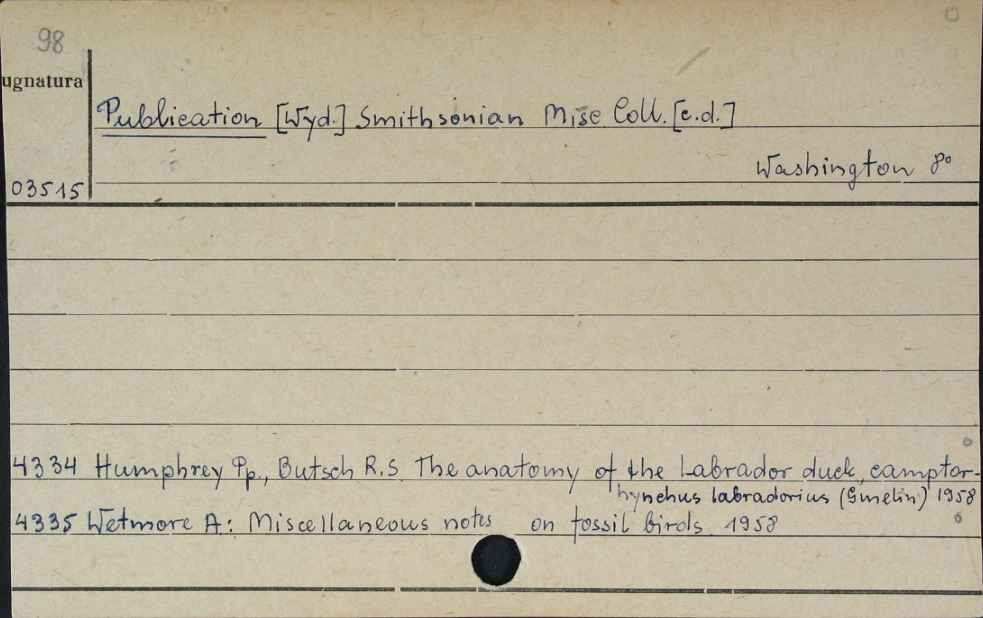 98
ugnatura
Publication [Wyd.] Smithsonian Misc Coll. [c.d.]
Washington 8°
03515
4334 Humphrey Pp., Butsch R.S The anatomy of the Labrador duck, camptor-
hynchus labradorius (Gmelin) 1958
4335 Wetmore A: Miscellaneous notes on fossil birds 1958